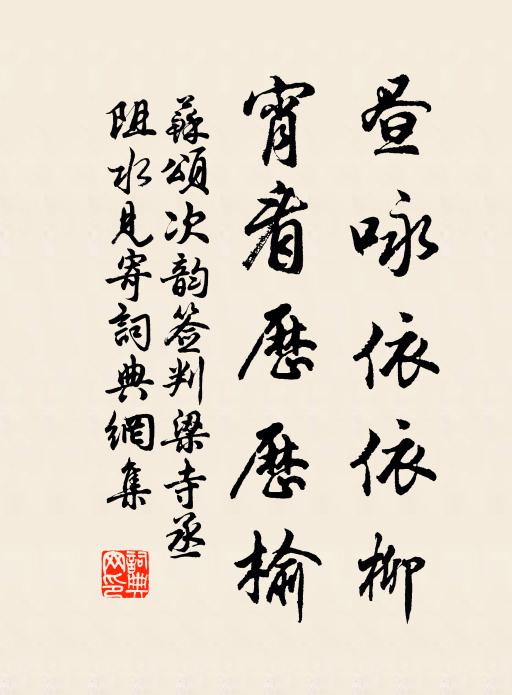 昼咏依依柳
宵看历历榆
蘇頌次韵签判梁寺丞
阻水見寄詞典網集
詞典網印